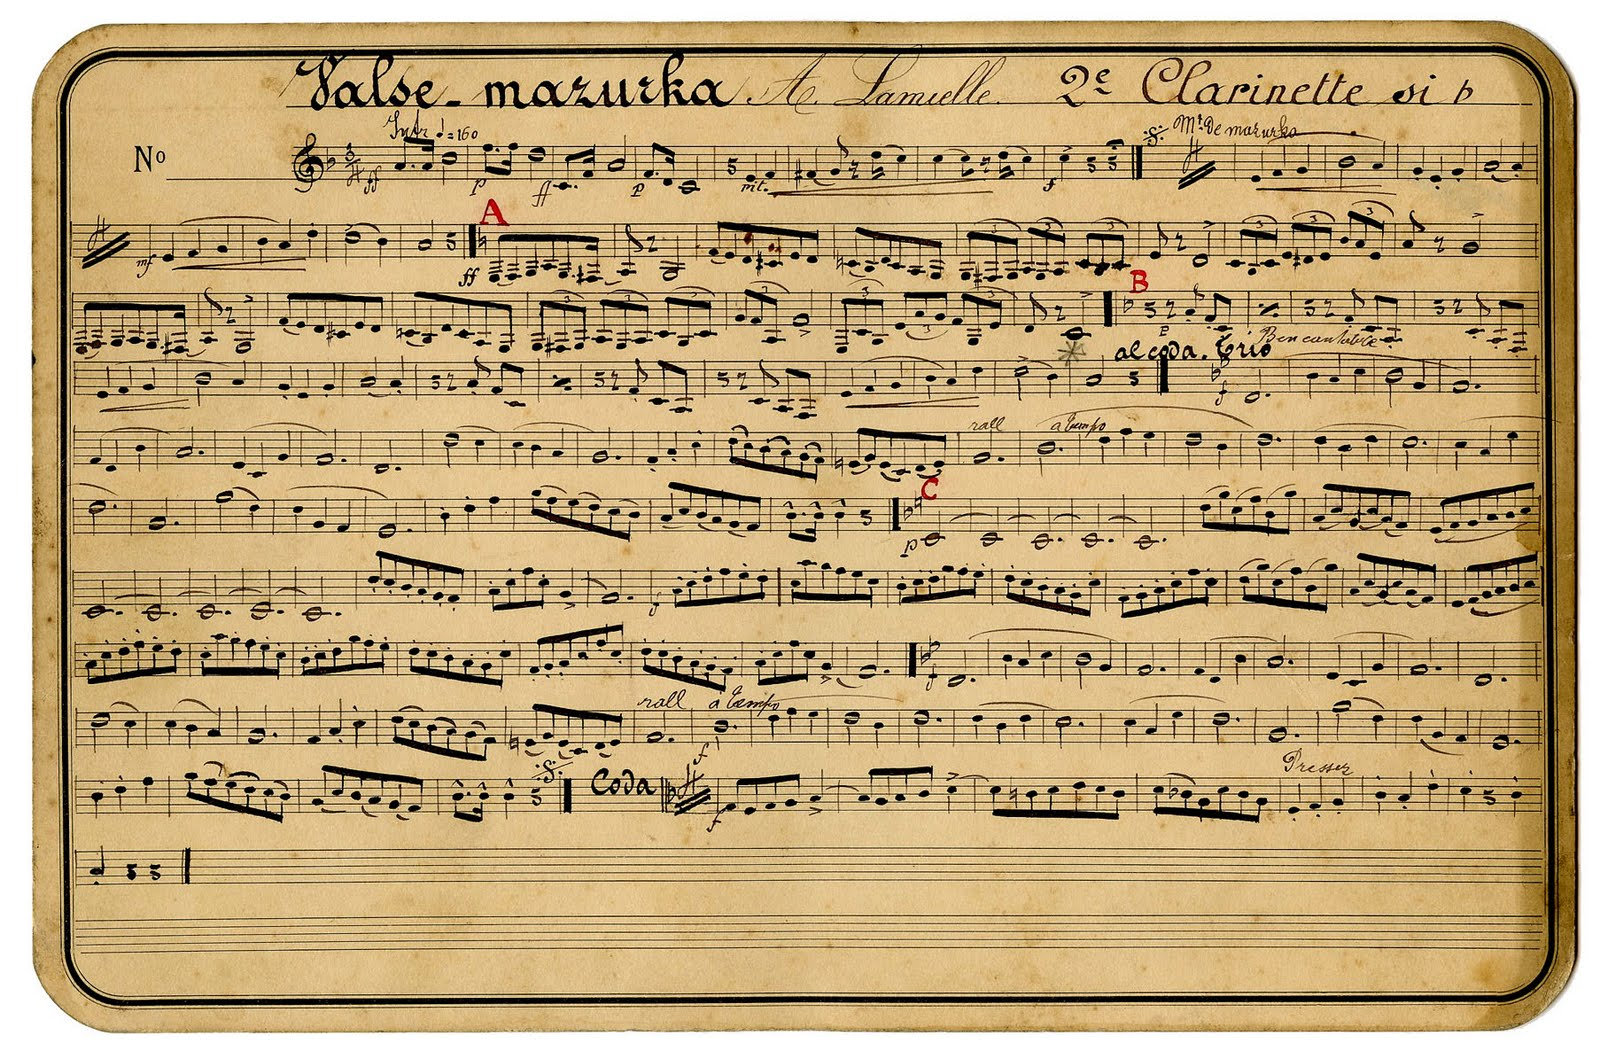 Valse-mazurka A. Lamielle. 2e Clarinette si b
No
Intr = 160
Mt. De mazurka
ff p ff p mf. f
A
mf ff
B
p Ben cantabile
al coda. Trio
f
rall a tempo
C
p
f
f
rall à tempo
f
Coda Presser
f